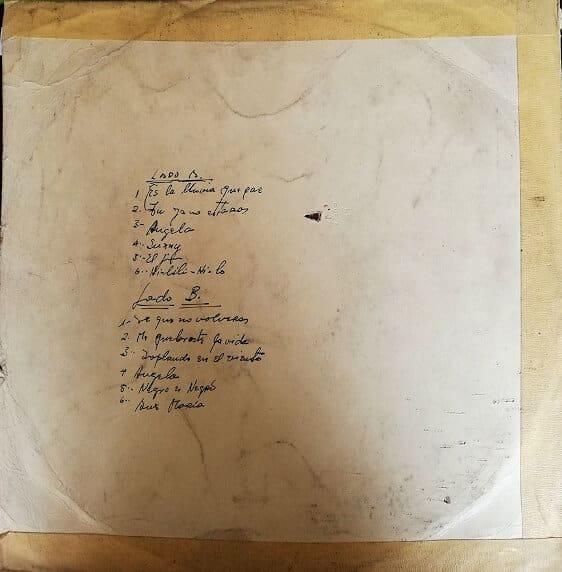 LADO B.
1 Es la lluvia que cae
2. Tu ya no estaras
3- Angela
4- Sunny
5- El
6-
Lado B.
1- Se que no volveras
2. Mi quebraste la vida
3- Soplando en el viento
4 Angela
5- Negro es Negro
6- Ave Maria